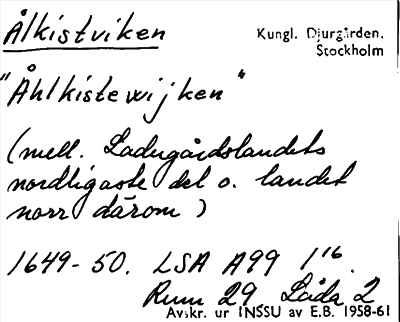 Ålkistviken
Kungl. Djurgården.
Stockholm
"Åhlkistewijken"
(mell. Ladugårdslandets
nordligaste del o. landet
norr därom)
1649-50. LSA A99 1¹⁶.
Rum 29 Låda 2
Avskr. ur INSSU av E.B. 1958-61